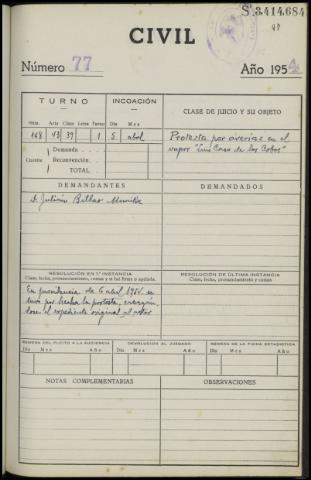 S.3.414.684
CIVIL
Número 77
Año 1954
TURNO
INCOACIÓN
CLASE DE JUICIO Y SU OBJETO
Núm. Acta Clase Letra Turno
Día Mes
168 13 39 1 5 abril
Protesta por averias en el
vapor "Luis Caso de los Cobos"
Demanda
Cuantía Reconvención
TOTAL
DEMANDANTES
DEMANDADOS
D. Julian Bilbao
RESOLUCIÓN EN 1ª INSTANCIA
RESOLUCIÓN DE ÚLTIMA INSTANCIA
Clase, fecha, pronunciamiento, costas y si fué firme o apelada.
Clase, fecha, pronunciamiento y costas
En providencia de 6 abril 1954 se
tuvo por hecha la protesta,
dose el expediente original al actor
REMESA DEL PLEITO A LA AUDIENCIA
DEVOLUCIÓN AL JUZGADO
REMESA DE LA FICHA ESTADÍSTICA
Día Mes Año
Día Mes Año
Día Mes Año
NOTAS COMPLEMENTARIAS
OBSERVACIONES